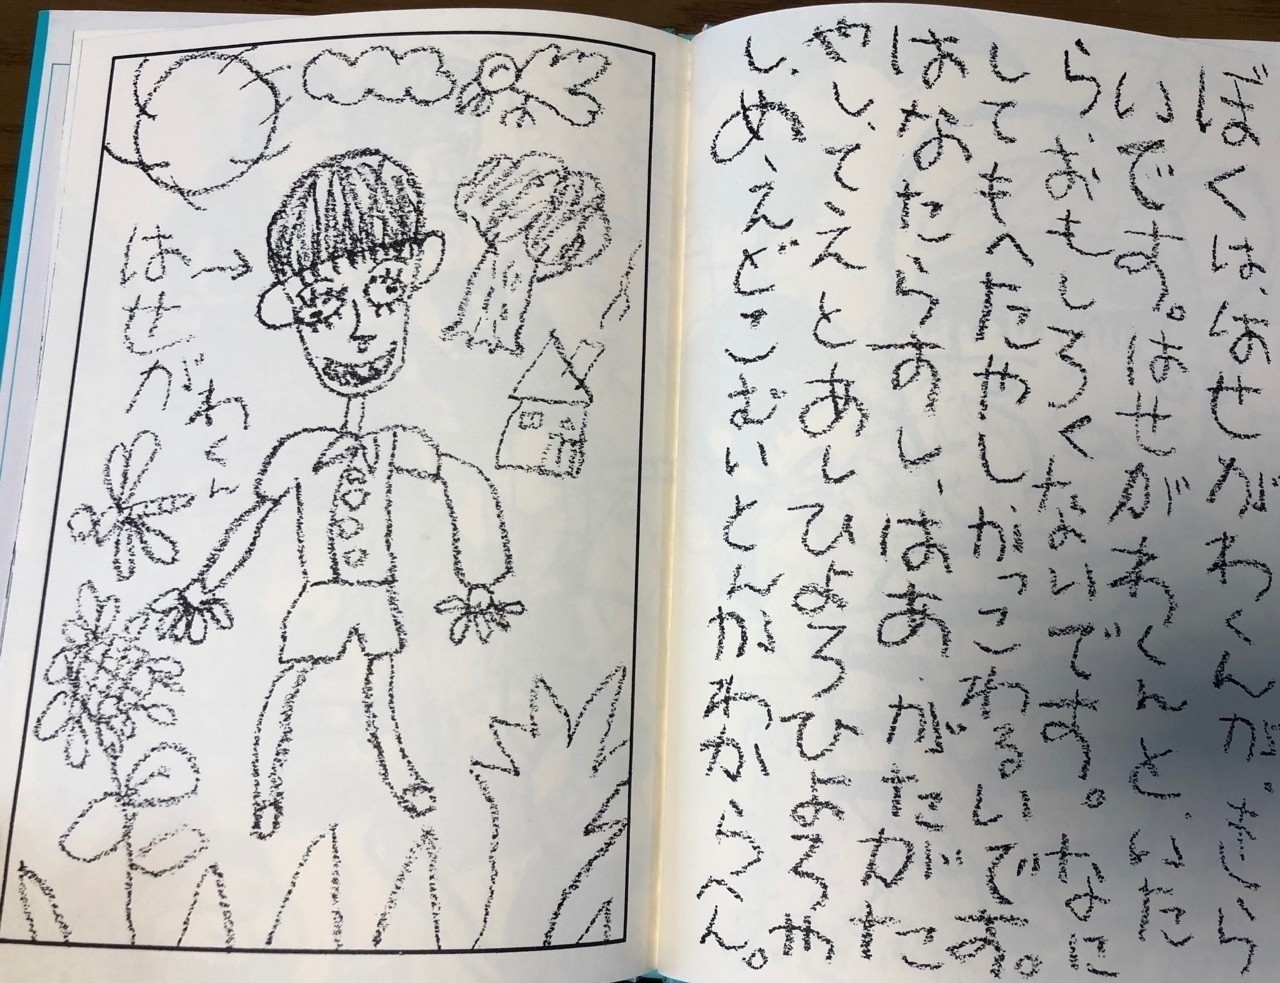 ぼくは、はせがわくんが、きら
いです。はせがわくんと、いた
ら、おもしろくないです。なに
してもへたやしかっこわるいです。
はなたらすし、はあ、がたがた
やし、てえとあしひょろひょろや
し、め、えどこむいとんかわからへん。
はせが
わくん